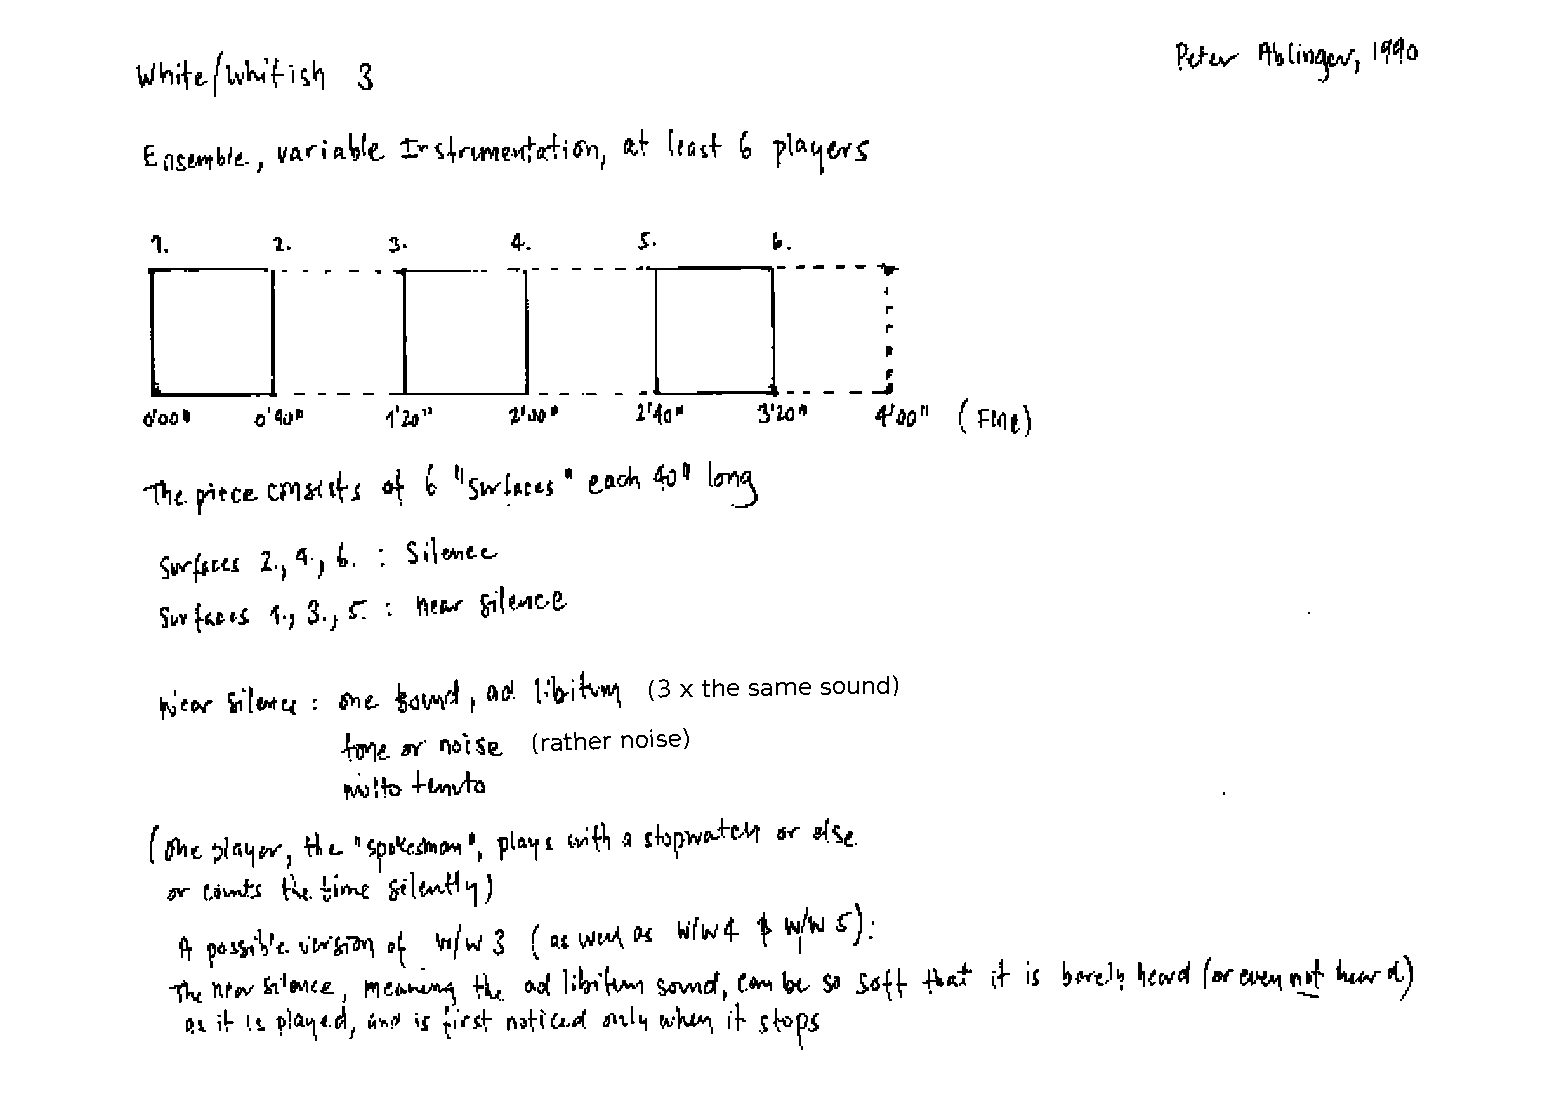 White/Whitish 3
Peter Ablinger, 1990
Ensemble, variable Instrumentation, at least 6 players
1. 2. 3. 4. 5. 6.
0'00" 0'40" 1'20" 2'00" 2'40" 3'20" 4'00" (Fine)
The piece consists of 6 "surfaces" each 40" long
Surfaces 2., 4., 6. : Silence
Surfaces 1., 3., 5. : near silence
Near silence : one sound, ad libitum (3 x the same sound)
tone or noise (rather noise)
molto tenuto
(One player, the "spokesman", plays with a stopwatch or else
or counts the time silently)
A possible version of W/W 3 (as well as W/W 4 & W/W 5):
The near silence, meaning the ad libitum sound, can be so soft that it is barely heard (or even not heard)
as it is played, and is first noticed only when it stops